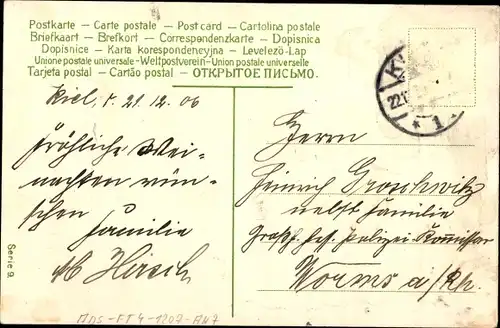 Postkarte – Carte postale – Post card – Cartolina postale
Briefkaart – Brefkort – Correspondenzkarte – Dopisnica
Dopisnice – Karta korespondencyjna – Levelező-Lap
Unione postale universale – Weltpostverein – Union postale universelle
Tarjeta postal – Cartão postal – ОТКРЫТОЕ ПИСЬМО.
Kiel, 21.12.06
fröhliche Wei-
nachten wün-
schen
Familie
M Hirsch
Serie 9.
Herrn
Heinrich Groschwitz
nebst Familie
Großh. Polizei-Kommissar
Worms a/Rh.
22.1
* 1